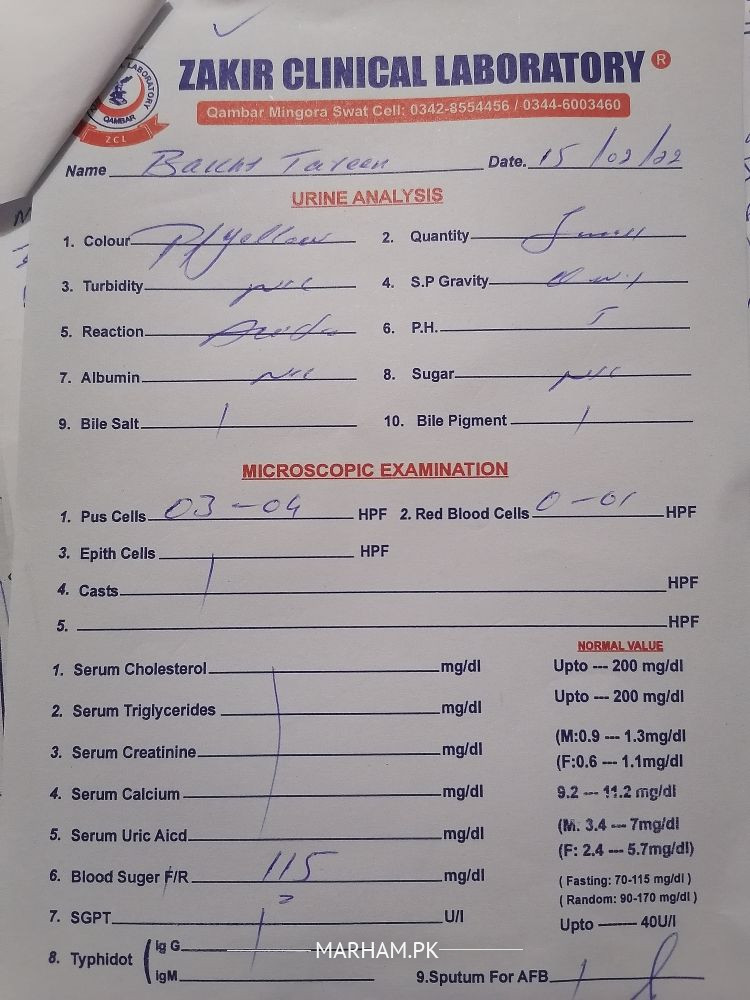 LABORATORY
QAMBAR
ZCL
ZAKIR CLINICAL LABORATORY ®
Qambar Mingora Swat Cell: 0342-8554456 / 0344-6003460
Name Date. 15/02/22
URINE ANALYSIS
1. Colour P/Yellow 2. Quantity
3. Turbidity Nil 4. S.P Gravity
5. Reaction 6. P.H.
7. Albumin Nil 8. Sugar Nil
9. Bile Salt / 10. Bile Pigment /
MICROSCOPIC EXAMINATION
1. Pus Cells 03-04 HPF 2. Red Blood Cells 0-01 HPF
3. Epith Cells HPF
4. Casts HPF
5. HPF
NORMAL VALUE
1. Serum Cholesterol mg/dl Upto --- 200 mg/dl
2. Serum Triglycerides mg/dl Upto --- 200 mg/dl
3. Serum Creatinine mg/dl (M:0.9 --- 1.3mg/dl
(F:0.6 --- 1.1mg/dl
4. Serum Calcium mg/dl 9.2 --- 11.2 mg/dl
5. Serum Uric Aicd mg/dl (M. 3.4 --- 7mg/dl
(F: 2.4 --- 5.7mg/dl)
6. Blood Suger F/R 115 mg/dl ( Fasting: 70-115 mg/dl )
( Random: 90-170 mg/dl )
7. SGPT U/l Upto ------ 40U/l
8. Typhidot ( Ig G
IgM
9.Sputum For AFB
MARHAM.PK